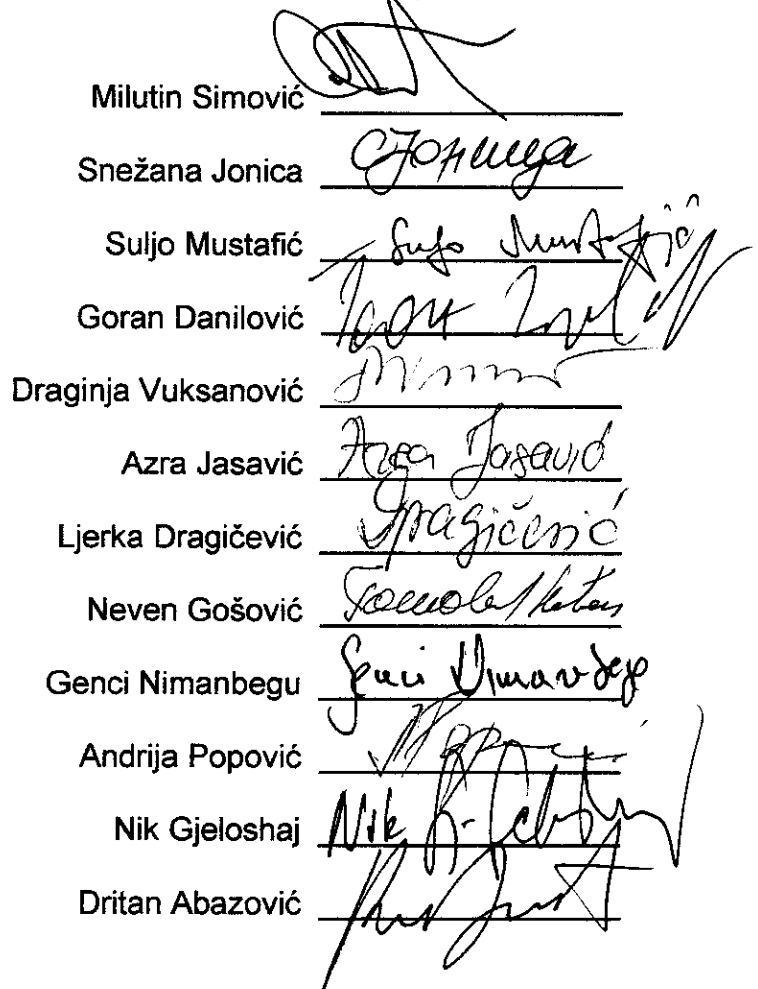 Milutin Simović
Snežana Jonica СЈоница
Suljo Mustafić Suljo Mustafić
Goran Danilović
Draginja Vuksanović
Azra Jasavić Azra Jasavić
Ljerka Dragičević Dragičević
Neven Gošović
Genci Nimanbegu Genci Nimanbegu
Andrija Popović
Nik Gjeloshaj Nik
Dritan Abazović